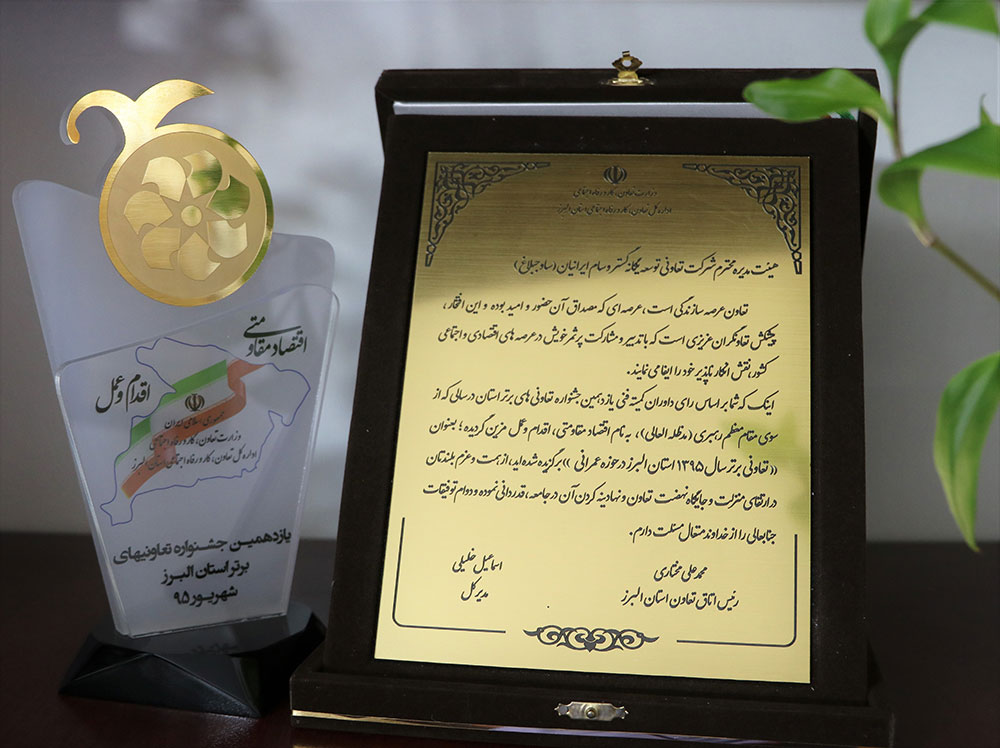 اقتصاد مقاومتی
اقدام و عمل
جمهوری اسلامی ایران
وزارت تعاون، کار و رفاه اجتماعی
اداره کل تعاون، کار و رفاه اجتماعی استان البرز
یازدهمین جشنواره تعاونیهای
برتر استان البرز
شهریور ۹۵
وزارت تعاون، کار و رفاه اجتماعی
اداره کل تعاون، کار و رفاه اجتماعی استان البرز
هیئت مدیره محترم شرکت تعاونی توسعه یگانه گستر وسام ایرانیان (ساوجبلاغ)
تعاون عرصه سازندگی است، عرصه ای که مصداق آن حضور و امید بوده و این افتخار،
پیشکش تعاونگران عزیزی است که با تدبیر و مشارکت پرثمر خویش در عرصه های اقتصادی و اجتماعی
کشور، نقش انکار ناپذیر خود را ایفا می نمایند.
اینک که شما بر اساس رای داوران کمیته فنی یازدهمین جشنواره تعاونی های برتر استان در سالی که از
سوی مقام معظم رهبری (مدظله العالی)، به نام اقتصاد مقاومتی، اقدام و عمل مزین گردیده؛ بعنوان
«تعاونی برتر سال ۱۳۹۵ استان البرز در حوزه عمرانی» برگزیده شده اید، از همت و عزم بلندتان
در ارتقای منزلت و جایگاه نهضت تعاون و نهادینه کردن آن در جامعه، قدردانی نموده و دوام توفیقات
جنابعالی را از خداوند متعال مسئلت دارم.
محمدعلی مختاری
رئیس اتاق تعاون استان البرز
اسماعیل خلیلی
مدیرکل